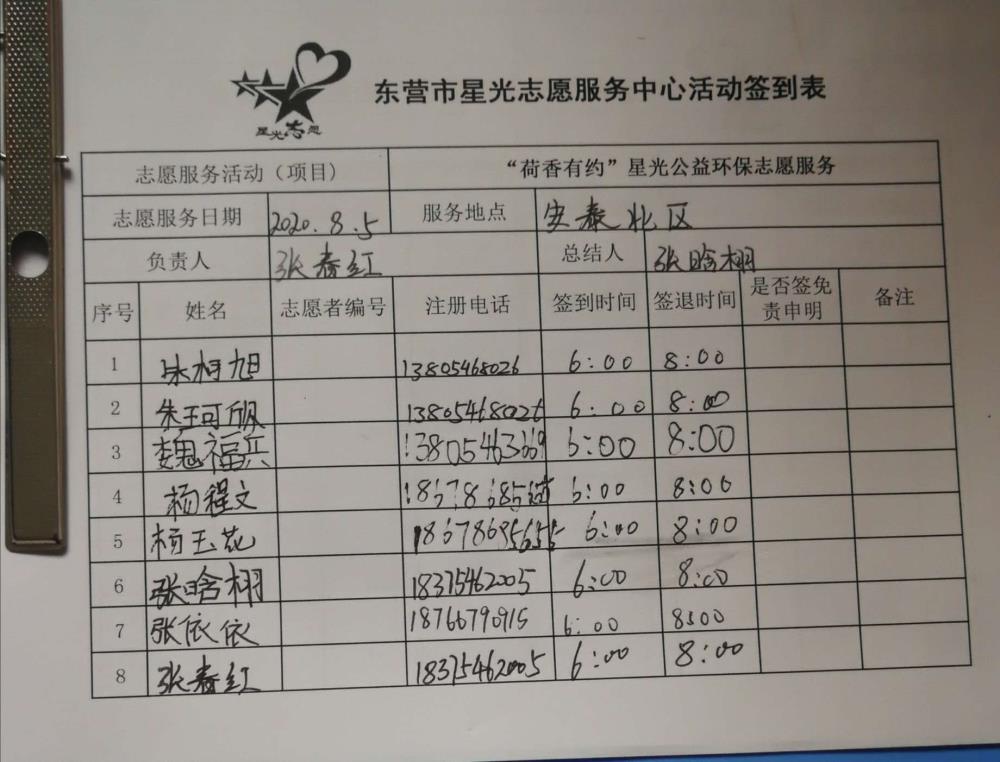 星光志愿
东营市星光志愿服务中心活动签到表
志愿服务活动（项目） “荷香有约”星光公益环保志愿服务
志愿服务日期 2020.8.5 服务地点 安泰北区
负责人 张春红 总结人 张晗栩
序号 姓名 志愿者编号 注册电话 签到时间 签退时间 是否签免责申明 备注
1 柯旭 13805468026 6:00 8:00
2 朱珂欣 13805468026 6:00 8:00
3 魏福兵 13805463669 6:00 8:00
4 杨程文 6:00 8:00
5 杨玉花 18678695655 6:00 8:00
6 张晗栩 18375462005 6:00 8:00
7 张依依 18766790915 6:00 8:00
8 张春红 18375462005 6:00 8:00